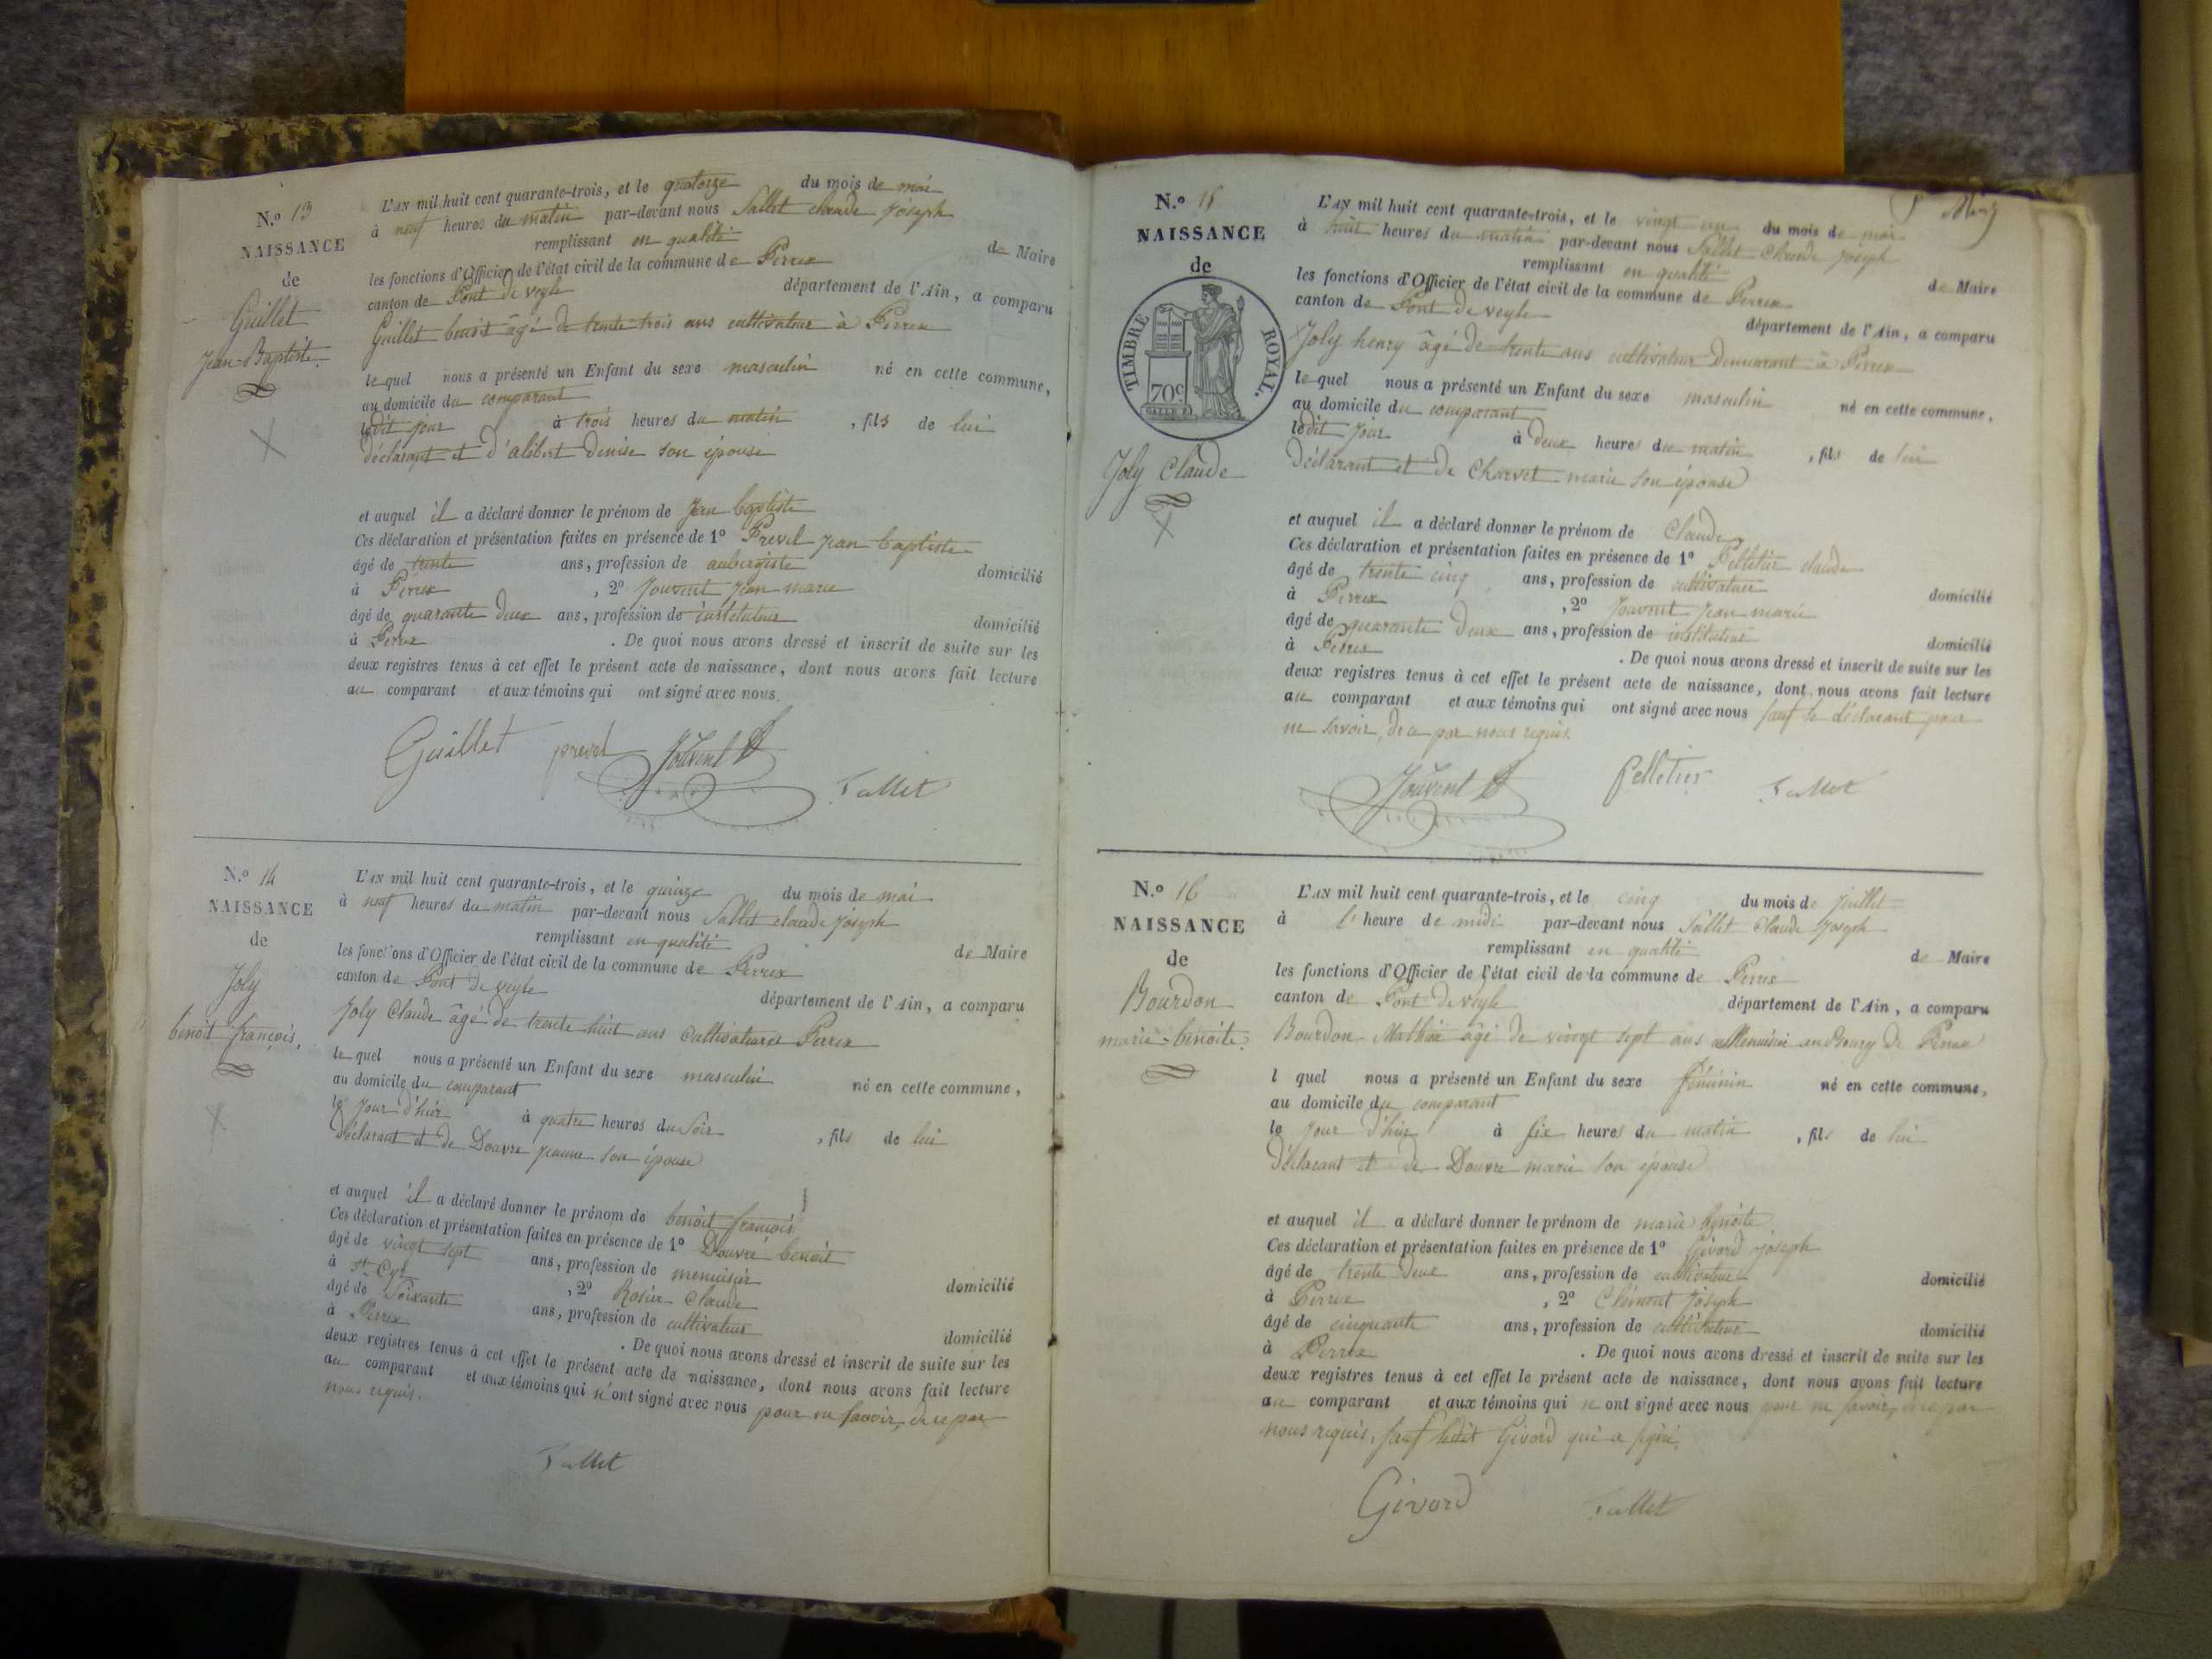 N.º 13
NAISSANCE
de
Guillet
Jean-Baptiste.
L'AN mil huit cent quarante-trois, et le quatorze du mois de mai
à neuf heures du matin par-devant nous Sallet claude joseph
remplissant en qualité de Maire
les fonctions d'Officier de l'état civil de la commune de Perrex
canton de Pont de veyle département de l'Ain, a comparu
Guillet benoit âgé de trente trois ans cultivateur à Perrex
lequel nous a présenté un Enfant du sexe masculin né en cette commune,
au domicile du comparant
ledit jour à trois heures du matin, fils de lui
déclarant et d'alibert Denise son épouse
et auquel il a déclaré donner le prénom de jean baptiste
Ces déclaration et présentation faites en présence de 1º Prevel jean baptiste
âgé de trente ans, profession de aubergiste domicilié
à Perrex, 2º Jouvent jean marie
âgé de quarante deux ans, profession de instituteur domicilié
à Perrex. De quoi nous avons dressé et inscrit de suite sur les
deux registres tenus à cet effet le présent acte de naissance, dont nous avons fait lecture
au comparant et aux témoins qui ont signé avec nous.
Guillet prevel Jouvent Sallet
N.º 14
NAISSANCE
de
Joly
benoit françois.
L'AN mil huit cent quarante-trois, et le quinze du mois de mai
à neuf heures du matin par-devant nous Sallet claude joseph
remplissant en qualité de Maire
les fonctions d'Officier de l'état civil de la commune de Perrex
canton de Pont de veyle département de l'Ain, a comparu
Joly Claude âgé de trente huit ans cultivateur à Perrex
lequel nous a présenté un Enfant du sexe masculin né en cette commune,
au domicile du comparant
le jour d'hier à quatre heures du soir, fils de lui
déclarant et de Douvre jeanne son épouse
et auquel il a déclaré donner le prénom de benoit françois
Ces déclaration et présentation faites en présence de 1º Douvre benoit
âgé de vingt sept ans, profession de menuisier domicilié
à St Cyr, 2º Rosier Claude
âgé de soixante ans, profession de cultivateur domicilié
à Perrex. De quoi nous avons dressé et inscrit de suite sur les
deux registres tenus à cet effet le présent acte de naissance, dont nous avons fait lecture
au comparant et aux témoins qui n'ont signé avec nous pour ne savoir, de ce par
nous requis.
Sallet
N.º 15
NAISSANCE
de
TIMBRE ROYAL.
70c
Joly Claude
L'AN mil huit cent quarante-trois, et le vingt un du mois de mai
à huit heures du matin par-devant nous Sallet Claude joseph
remplissant en qualité de Maire
les fonctions d'Officier de l'état civil de la commune de Perrex
canton de Pont de veyle département de l'Ain, a comparu
Joly henry âgé de trente ans cultivateur demeurant à Perrex
lequel nous a présenté un Enfant du sexe masculin né en cette commune,
au domicile du comparant
ledit jour à deux heures du matin, fils de lui
déclarant et de Charvet marie son épouse
et auquel il a déclaré donner le prénom de Claude
Ces déclaration et présentation faites en présence de 1º Pelletier claude
âgé de trente cinq ans, profession de cultivateur domicilié
à Perrex, 2º Jouvent jean marie
âgé de quarante deux ans, profession de instituteur domicilié
à Perrex. De quoi nous avons dressé et inscrit de suite sur les
deux registres tenus à cet effet le présent acte de naissance, dont nous avons fait lecture
au comparant et aux témoins qui ont signé avec nous sauf le déclarant pour
ne savoir, de ce par nous requis.
Jouvent Pelletier Sallet
N.º 16
NAISSANCE
de
Bourdon
marie-benoite.
L'AN mil huit cent quarante-trois, et le cinq du mois de juillet
à l'heure de midi par-devant nous Sallet Claude Joseph
remplissant en qualité de Maire
les fonctions d'Officier de l'état civil de la commune de Perrex
canton de Pont de veyle département de l'Ain, a comparu
Bourdon Mathieu âgé de vingt sept ans Menuisier au Bourg de Perrex
l quel nous a présenté un Enfant du sexe féminin né en cette commune,
au domicile du comparant
le jour d'hier à six heures du matin, fils de lui
déclarant et de Douvre marie son épouse
et auquel il a déclaré donner le prénom de marie benoite
Ces déclaration et présentation faites en présence de 1º Givord joseph
âgé de trente deux ans, profession de cultivateur domicilié
à Perrex, 2º Clément joseph
âgé de cinquante ans, profession de cultivateur domicilié
à Perrex. De quoi nous avons dressé et inscrit de suite sur les
deux registres tenus à cet effet le présent acte de naissance, dont nous avons fait lecture
au comparant et aux témoins qui n ont signé avec nous pour ne savoir, de ce par
nous requis, sauf ledit Givord qui a signé.
Givord Sallet